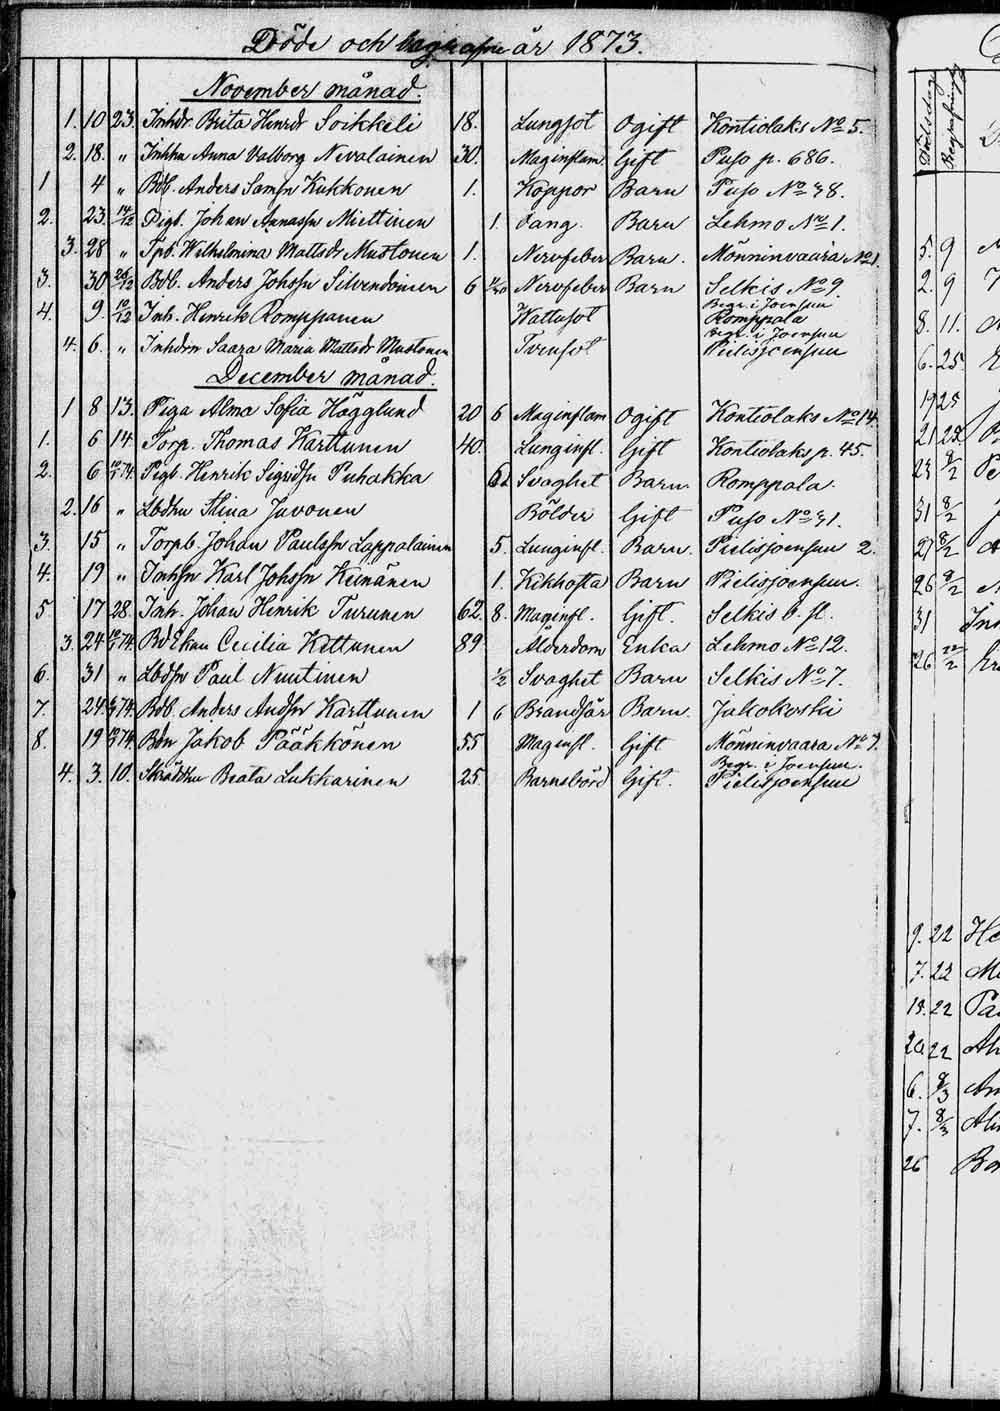 Döde och begrafne år 1873.
November månad.
1. 10 23. Inhdr Brita Henrdr Soikkeli 18. Lungsot Ogift Kontiolaks No 5.
2. 18. " Inhhu Anna Valborg Nevalainen 30. Maginflam Gift Puso p. 686.
1 4 " Bdb. Anders Samsn Kukkonen 1. Koppor Barn Puso No 38.
2. 23 14/12 Pigb. Johan Annassn Miettinen 1. Fång. Barn Lehmo No 1.
3. 28 " Tpb. Wilhelmina Mattsdr Mustonen 1. Nervfeber Barn. Mönninvaara No 1.
3. 30 26/12 Bdb. Anders Johssn Silvendoinen 6 Nervfeber Barn Selkis No 9.
4. 9. 10/12 Inh. Henrik Romppanen Wattusot Begr. i Joensuu Romppala
4. 6. " Inhdrn Saara Maria Mattsdr Mustonen Tvinsot Begr. i Joensuu Pielisjoensuu
December månad.
1 8 13. Piga Alma Sofia Hägglund 20 6 Maginflam Ogift Kontiolaks No 14.
1. 6 14. Torp. Thomas Karttunen 40. Lunginfl. Gift Kontiolaks p. 45.
2. 6 74. Pigb. Henrik Sigridsn Puhakka Svaghet Barn. Romppala.
2. 16 " Lbdhu Stina Juvonen Bölder Gift Puso No 31.
3. 15 " Torpb. Johan Paulssn Lappalainen 5. Lunginfl. Barn. Pielisjoensuu 2.
4. 19 " Inhsn Karl Johssn Keinänen 1. Kikhosta Barn Pielisjoensuu.
5 17 28. Inh. Johan Henrik Turunen 62. 8. Maginfl. Gift. Selkis b. fl.
3. 24 74. Bd Enkan Cecilia Kettunen 89 Ålderdom Enka Lehmo No 12.
6. 31 " Lbdsn Paul Nuutinen 1/2 Svaghet Barn Selkis No 7.
7. 24. 74. Bdb. Anders Andsn Karttunen 1 6 Brandsår Barn. Jakokoski
8. 19 74. Bdn Jakob Pääkkönen 55 Maginfl. Gift Mönninvaara No 7.
4. 3. 10. Skräddhu Beata Lukkarinen 25. Barnsbörd Gift. Begr. i Joensuu. Pielisjoensuu
Dödsdag
Begrafningsdag
5. 9
2. 9
8. 11.
6. 25.
19 25
21 28
23 8/2
31 8/2
27 8/2
26 8/2
31
26
9. 22
7. 22
18. 22
20 22
6. 8/3
7. 8/3
26